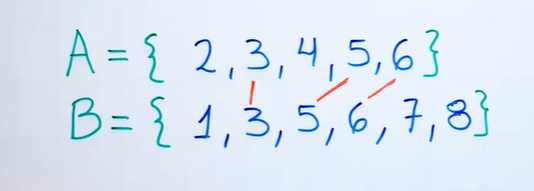 A = { 2, 3, 4, 5, 6 }
B = { 1, 3, 5, 6, 7, 8 }